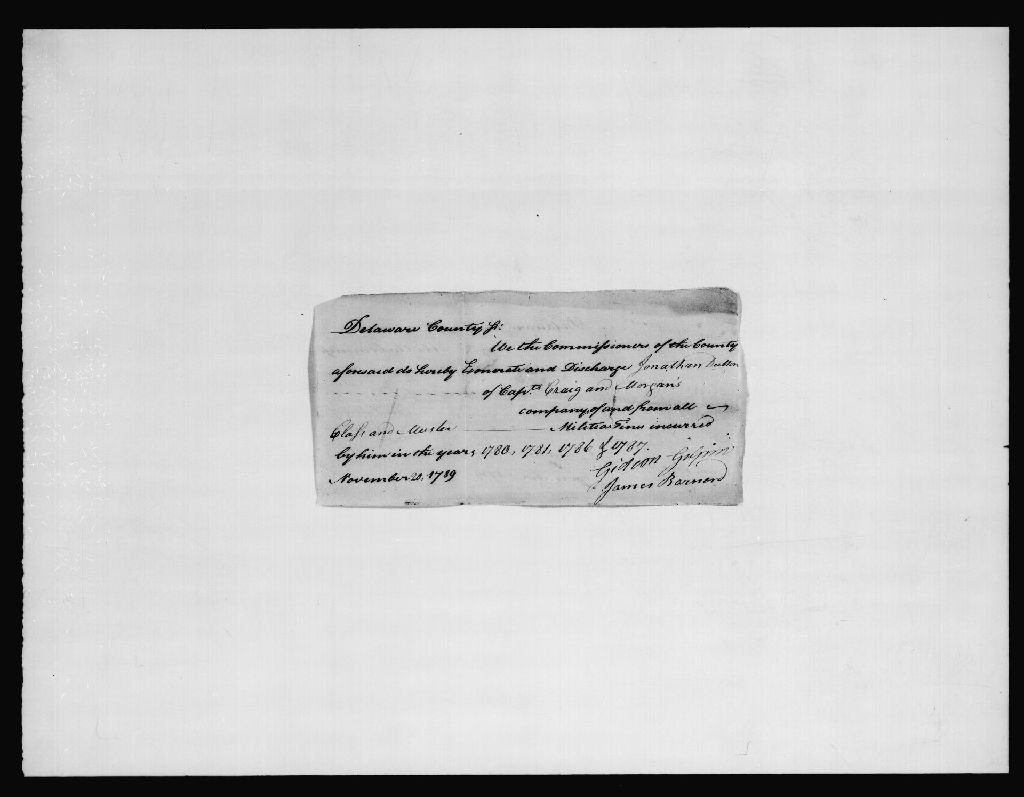 Delaware County ss:
We the Commissioners of the County
aforesaid do hereby Exonerate and Discharge Jonathan Dutton
of Capts Craig and Morgan's
company, of and from all
Class and Muster Militia Fines incurred
by him in the years, 1780, 1781, 1786 & 1787.
November 20, 1789 Gideon Gilpin
James Barnard